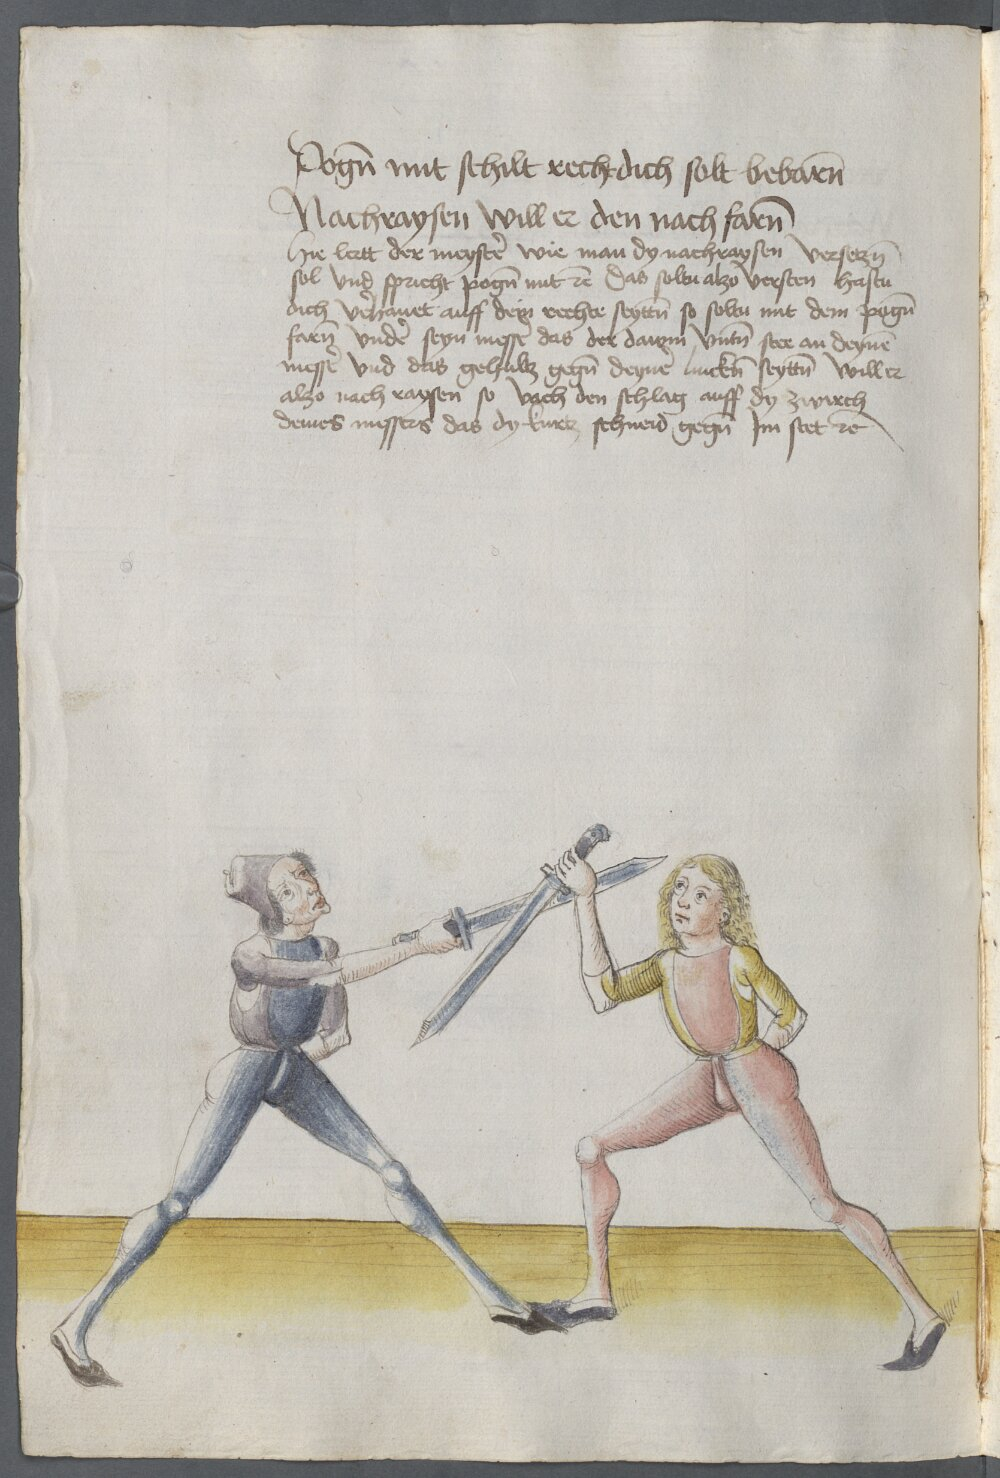 Pogn̄ mit schilt recht dich solt bebarn̄
Nachraysen will er den nach farn̄
Hie lertt der meyster̄ wie man dy nachraysen versetzn̄
sol und spricht pogn̄ mit rē Das soltu alzo versten hastu
dich verhauet auff dein rechte seyttn̄ so soltu mit dem pogn̄
farn̄ under̄ seyn messer̄ das der dawm untn̄ stee an deynē
messer̄ und das gehultz gegn̄ deyner̄ linckn̄ seyttn̄ will er
alzo nach raysen so vach den schlag auff dy zwirch
deines messers das dy kurtz schneid gegn̄ Im stet rē